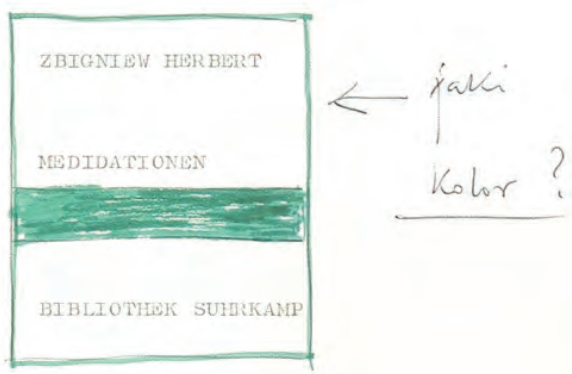 ZBIGNIEW HERBERT
MEDIDATIONEN
BIBLIOTHEK SUHRKAMP
jaki
kolor ?